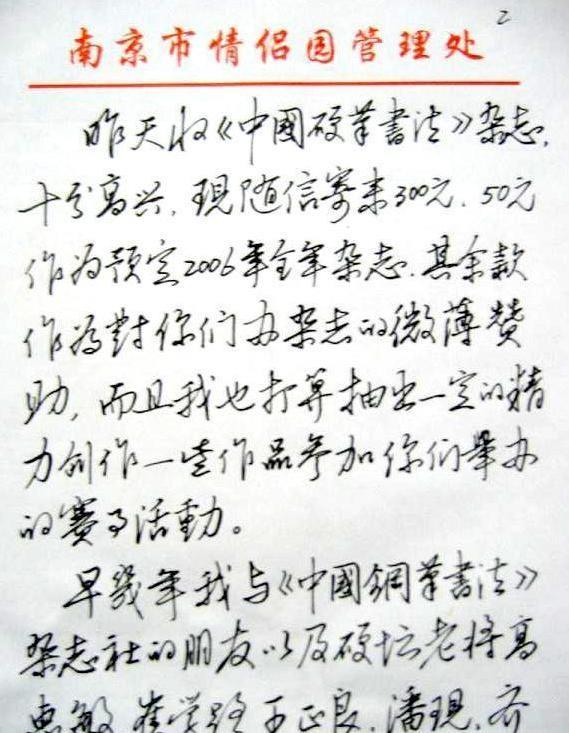 2
南京市情侣园管理处
昨天收《中國硬筆書法》杂志,
十分高兴.現随信寄来300元.50元
作为预定2006年全年杂志.其余款
作為對你们办杂志的微薄赞
助,而且我也打算抽出一定的精
力创作一些作品参加你们举办
的賽事活動。
早幾年我与《中國鋼筆書法》
杂志社的朋友以及硬坛老将高
惠敏 崔学路 王正良.潘現.齐